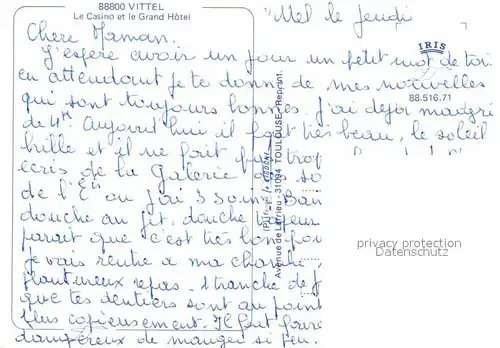 88800 VITTEL
Le Casino et le Grand Hôtel
Mel le jeudi
Chere Maman.
IRIS
J'espère avoir un jour un petit mot de toi.
en attendant je te donne de mes nouvelles
88.516.71
qui sont toujours bonnes. J'ai déjà maigri
de Aujourd'hui il fait très beau, le soleil
brille et il ne fait pas trop
écris de la Galerie des so
de l'Ets où j'ai 3 soins. Bain
douche au jet, douche
parait que c'est très bon pou
je vais rentrer à ma chambre
plantureux repas. 1 tranche de j
que tes dentiers sont au point
plus copieusement. Il faut
dangereux de manger si peu.
Avenue de Larrieu - 31094 TOULOUSE / Reprint.
privacy protection
Datenschutz